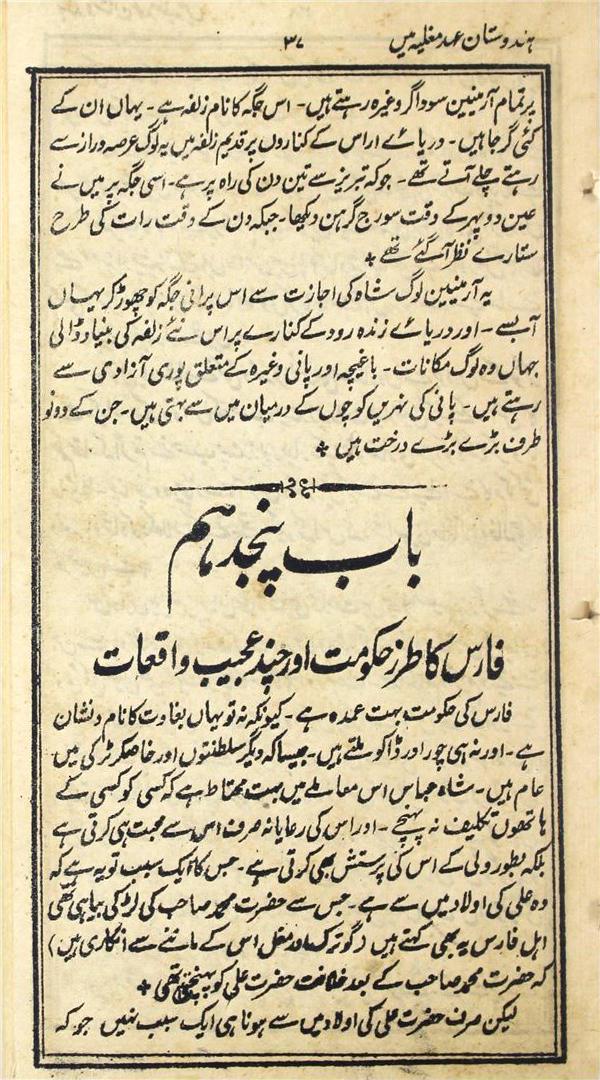 ہندوستان عہد مغلیہ میں ۳۷
پر تمام آرمینین سوداگر وغیرہ رہتے ہیں۔ اس جگہ کا نام زلفہ ہے۔ یہاں ان کے
کئی گرجا ہیں۔ دریائے اراس کے کناروں پر قدیم زلفہ میں یہ لوگ عرصہ دراز سے
رہتے چلے آتے تھے۔ جو کہ تبریز سے تین دن کی راہ پر ہے۔ اسی جگہ پر میں نے
عین دوپہر کے وقت سورج گرہن دیکھا۔ جبکہ دن کے وقت رات کی طرح
ستارے نظر آگئے تھے ٭
یہ آرمینین لوگ شاہ کی اجازت سے اس پرانی جگہ کو چھوڑ کر یہاں
آبسے۔ اور دریائے زندہ رود کے کنارے پر اس نئے زلفہ کی بنیاد ڈالی
جہاں وہ لوگ مکانات۔ باغیچہ اور پانی وغیرہ کے متعلق پوری آزادی سے
رہتے ہیں۔ پانی کی نہریں کوچوں کے درمیان میں سے بہتی ہیں۔ جن کے دونو
طرف بڑے بڑے درخت ہیں ٭
باب پنجدہم
فارس کا طرز حکومت اور چند عجیب واقعات
فارس کی حکومت بہت عمدہ ہے۔ کیونکہ نہ تو یہاں بغاوت کا نام و نشان
ہے۔ اور نہ ہی چور اور ڈاکو ملتے ہیں۔ جیسا کہ دیگر سلطنتوں اور خاصکر ٹرکی میں
عام ہیں۔ شاہ عباس اس معاملے میں بہت محتاط ہے کہ کسی کو کسی کے
ہاتھوں تکلیف نہ پہنچے۔ اور اس کی رعایا نہ صرف اس سے محبت ہی کرتی ہے
بلکہ بطور ولی کے اس کی پرستش بھی کرتی ہے۔ جس کا ایک سبب تو یہ ہے کہ
وہ علی کی اولاد میں سے ہے۔ جس سے حضرت محمد صاحب کی لڑکی بیاہی تھی
اہل فارس یہ بھی کہتے ہیں (گو ترک اور مغل اس کے ماننے سے انکاری ہیں)
کہ حضرت محمد صاحب کے بعد خلافت حضرت علی کو پہنچتی تھی ٭
لیکن صرف حضرت علی کی اولاد میں سے ہونا ہی ایک سبب نہیں جو کہ